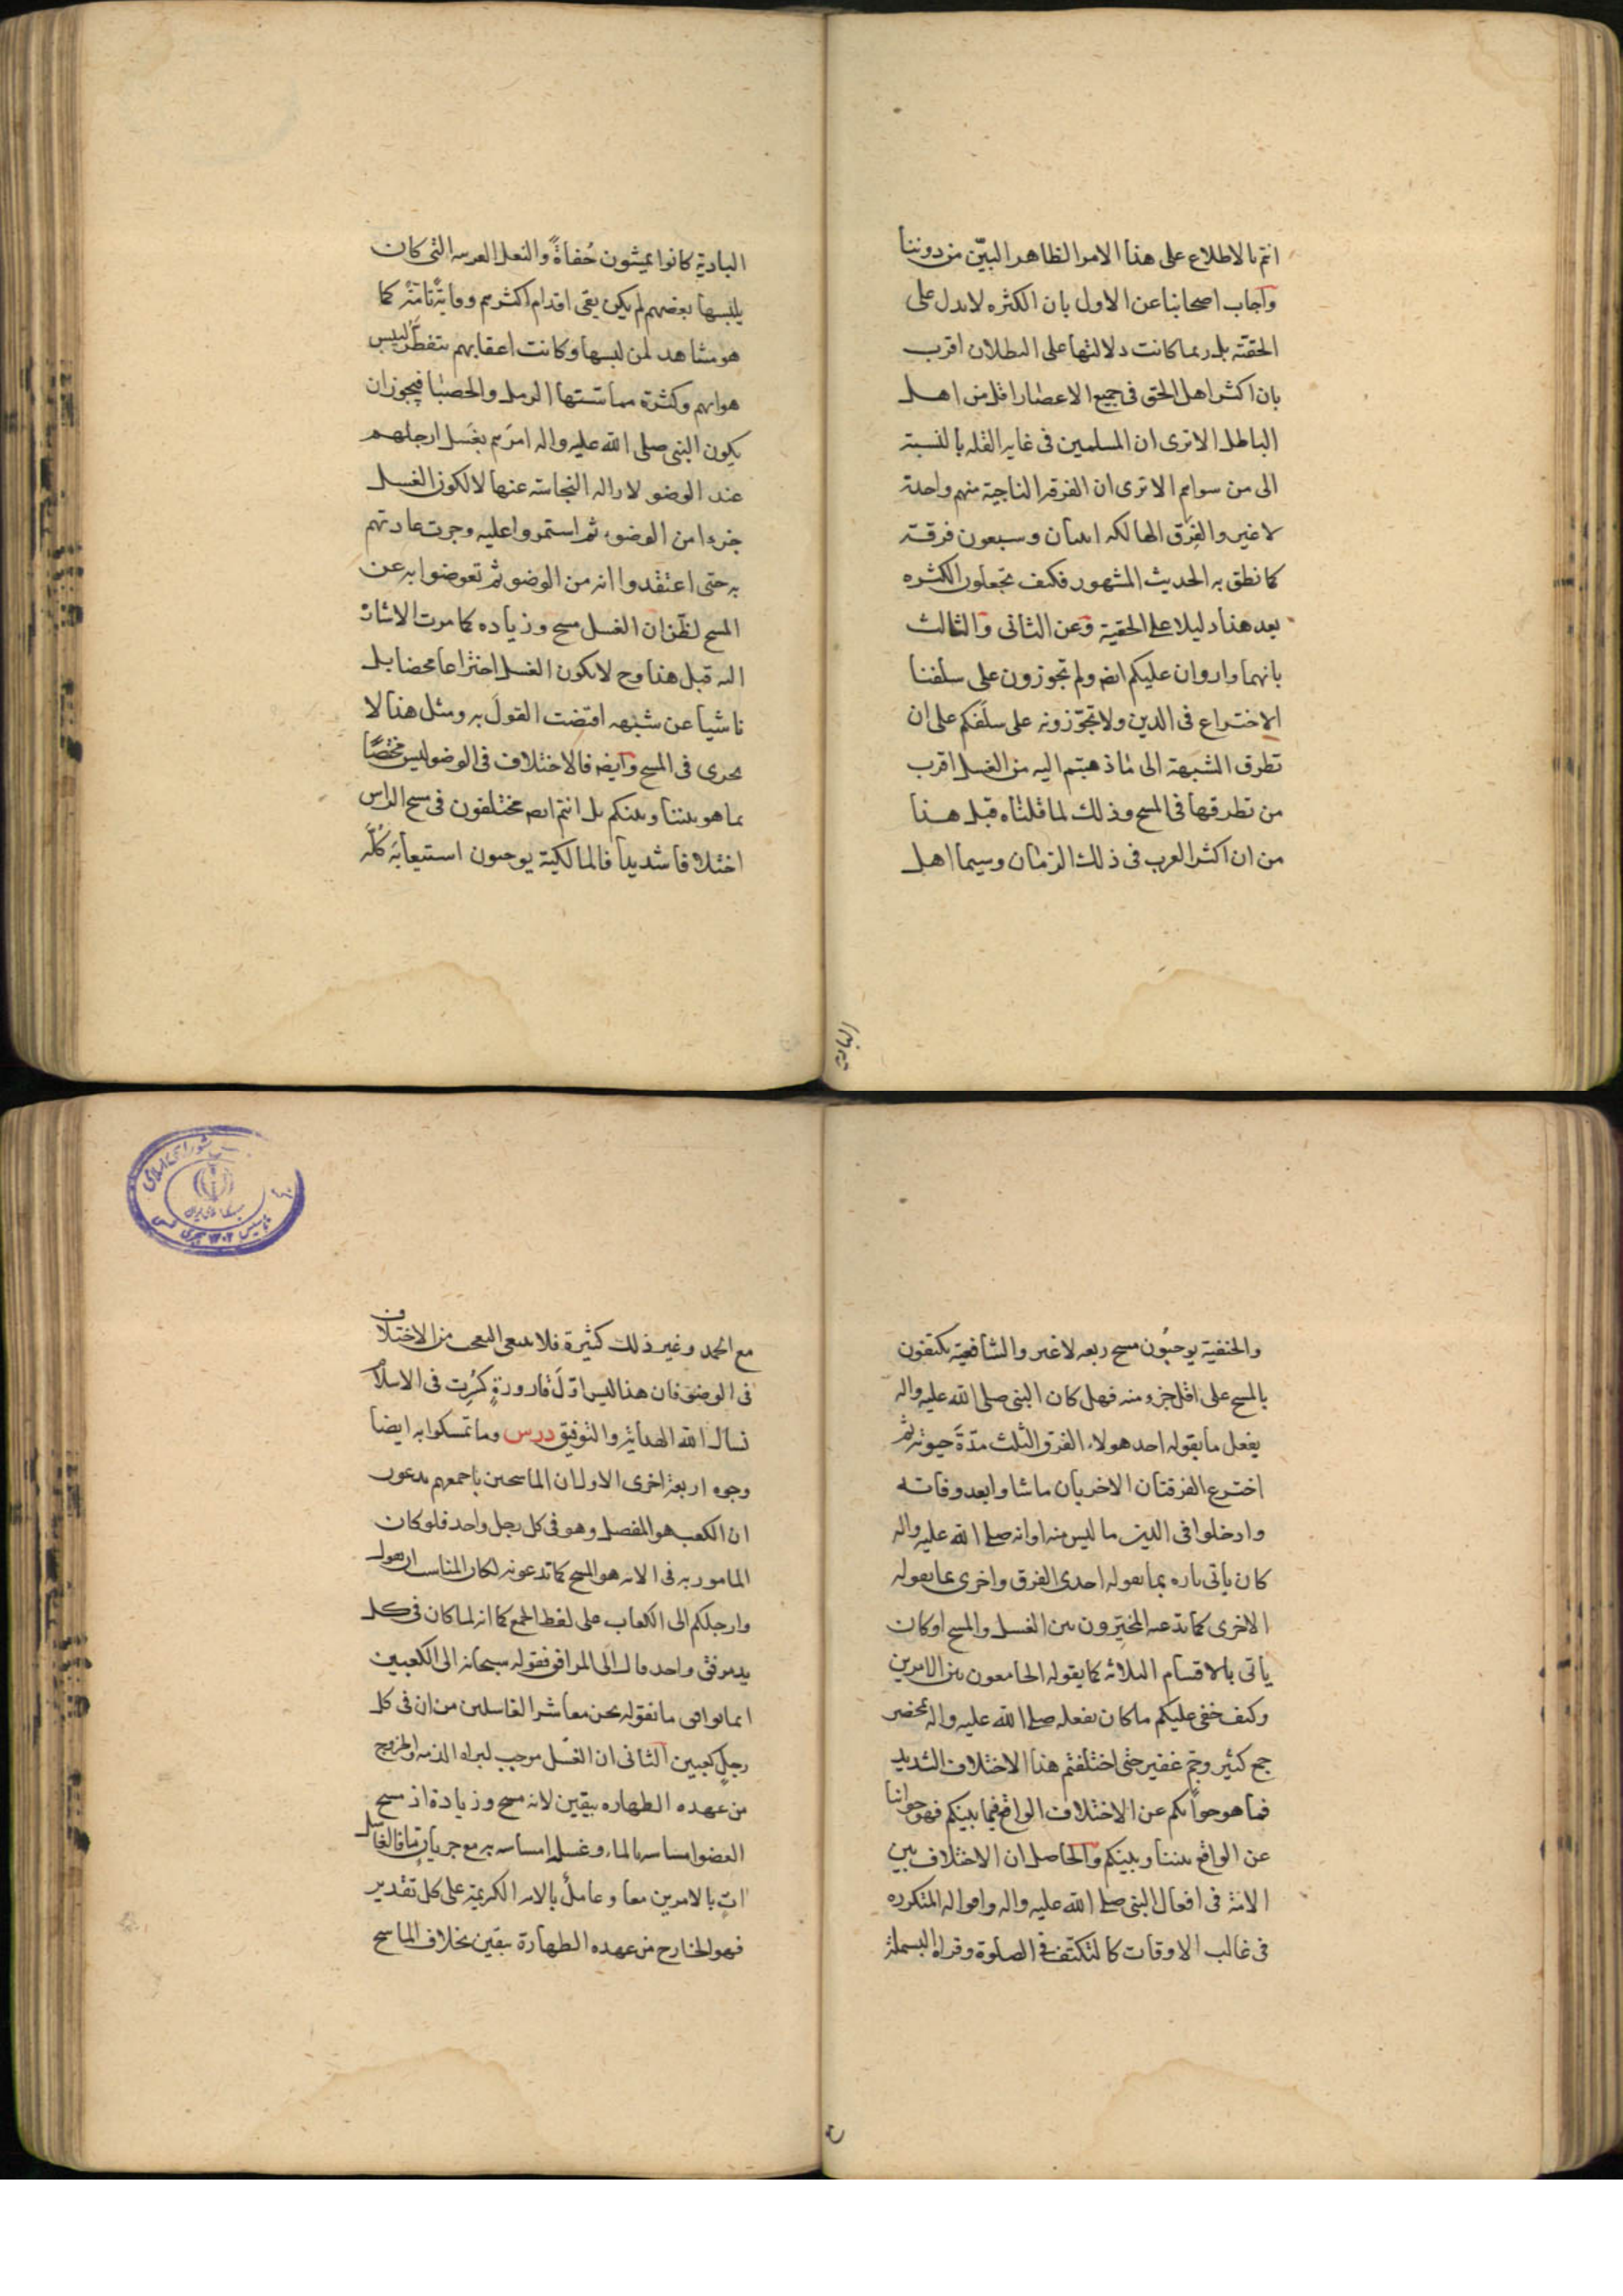 انتم بالاطلاع على هذا الامر الظاهر البيّن من دوننا
وآجاب اصحابنا عن الاول بان الكثره لا تدل على
الحقيّه بل ربما كانت دلالتها على البطلان اقرب
بان اكثر اهل الحق فى جميع الاعصار اقل من اهل
الباطل الا ترى ان المسلمين فى غايه القله بالنسبة
الى من سواهم الا ترى ان الفرقه الناجية منهم واحدة
لا غير والفِرَق الهالكه اثنان وسبعون فرقة
كما نطق به الحديث المشهور فكيف تجعلون الكثره
بعد هذا دليلا على الحقية وعن الثانى والثالث
بانهما واردان عليكم ايضه ولم تجوزون على سلفنا
الاختراع فى الدين ولا تجوّزونه على سلَفكم على ان
تطرق الشبهة الى ما ذهبتم اليه من الغسل اقرب
من تطرقها فى المسح وذلك لما قلناه قبل هذا
من ان اكثر العرب فى ذلك الزمان وسيما اهل
البادية كانوا يمشون حُفاةً والنعل العربيه التى كان
يلبسها بعضهم لم يكن يقى اقدام اكثرهم وقايةً تامّةً كما
هو مشاهد لمن لبسها وكانت اعقابهم تتفطّر ليبس
هوائهم وكثرة مماسّتها الرمل والحصبا فيجوز ان
يكون النبى صلى الله عليه واله امرَهم بغَسل ارجلهم
عند الوضو لازاله النجاسة عنها لا لكون الغسل
جزءا من الوضوء ثم استمروا عليه وجرت عادتهم
به حتى اعتقدوا انه من الوضو ثم تعوضوا به عن
المسح لظن ان الغسل مسح وزياده كما مرت الاشارة
اليه قبل هذا وح لا يكون الغسل اختراعا محضا بل
ناشيا عن شبهه اقتضت القولَ به ومثل هذا لا
يجرى فى المسح وآيضه فالاختلاف فى الوضو ليس مختصًا
بما هو بيننا وبينكم بل انتم ايضه مختلفون فى مسح الراس
اختلافا شديدا فالمالكية يوجبون استيعابَه كُلّه
والحنفية يوجبُون مسح ربعه لا غير والشافعية يكتفون
بالمسح على اقل جزو منه فهل كان النبى صلى الله عليه واله
يفعل ما يقوله احد هولاء الفرق الثلث مدّةَ حيوته ثم
اخترع الفرقتان الاخريان ما شاوا بعد وفاته
وادخلوا فى الدين ما ليس منه او انه صلى الله عليه واله
كان ياتى تاره بما يقوله احدى الفرق واخرى بما يقوله
الاخرى كما تدعيه المخيّرون بين الغسل والمسح او كان
ياتى بالاقسام الثلاثه كما يقوله الجامعون بين الامرين
وكيف خفى عليكم ما كان يفعله صلى الله عليه واله بمحضر
جمع كثير وجمّ غفير حتى اختلفتم هذا الاختلاف الشديد
فما هو جوابكم عن الاختلاف الواقع فيما بينكم فهو جوابنا
عن الواقع بيننا وبينكم وآلحاصل ان الاختلاف بين
الامّة فى افعال النبى صلى الله عليه واله واقواله المتكرره
فى غالب الاوقات كالتكتّف فى الصلوة وقراة البسملة
مع الحمد وغير ذلك كثيرة فلا ينبغى التعجب من الاختلاف
فى الوضوء فان هذا ليس اوّلَ قارورةٍ كُسِرت فى الاسلام
نسال الله الهداية والتوفيق درس وما تمسكوا به ايضا
وجوه اربعة اخرى الاول ان الماسحين باجمعهم يدعون
ان الكعب هو المفصل وهو فى كل رجل واحد فلو كان
المامور به فى الايه هو المسح كما تدعونه لكان المناسب ان يقول
وارجلكم الى الكعاب على لفظ الجمع كما انه لما كان فى كل
يد مرفق واحد قال الى المرافق فقوله سبحانه الى الكعبين
انما يوافق ما نقوله نحن معاشر الغاسلين من ان فى كل
رجلٍ كعبين الثانى ان الغسل موجب لبراه الذمه والخروج
من عهده الطهاره بيقين لانه مسح وزيادة اذ مسح
العضو امساسه بالماء وغسله امساسه به مع جريانٍ ما فالغاسل
اتٍ بالامرين معا وعاملٌ بالايه الكريمة على كل تقدير
فهو الخارج من عهده الطهارة بيقين بخلاف الماسح